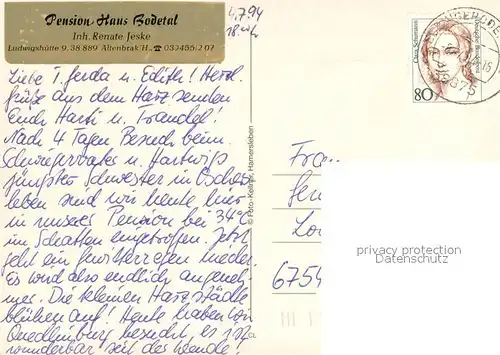 Pension Haus Bodetal
Inh. Renate Jeske
Ludwigshütte 9, 38 889 Altenbrak/H., ☎ 039456/2 07
4.7.94
18.00 h
Liebe Gerda u. Edith! Herzl.
Grüße aus dem Harz senden
Euch Harti u. Traudel!
Nach 4 Tagen Besuch beim
Schwiegervater u. Hartwigs
jüngster Schwester in Oschers-
leben sind wir heute hier
in unserer Pension bei 34°
im Schatten eingetroffen. Jetzt
geht ein Gewitterregen nieder.
Es wird also endlich angeneh-
mer. Die kleinen Harzstädte
blühen auf! Heute haben wir
Quedlinburg besucht, es ist
wunderbar seit der Wende!
© Foto-Kellner, Hamersleben
Clara Schumann
Deutsche Bundespost
80
Frau
6754
privacy protection
Datenschutz
CL